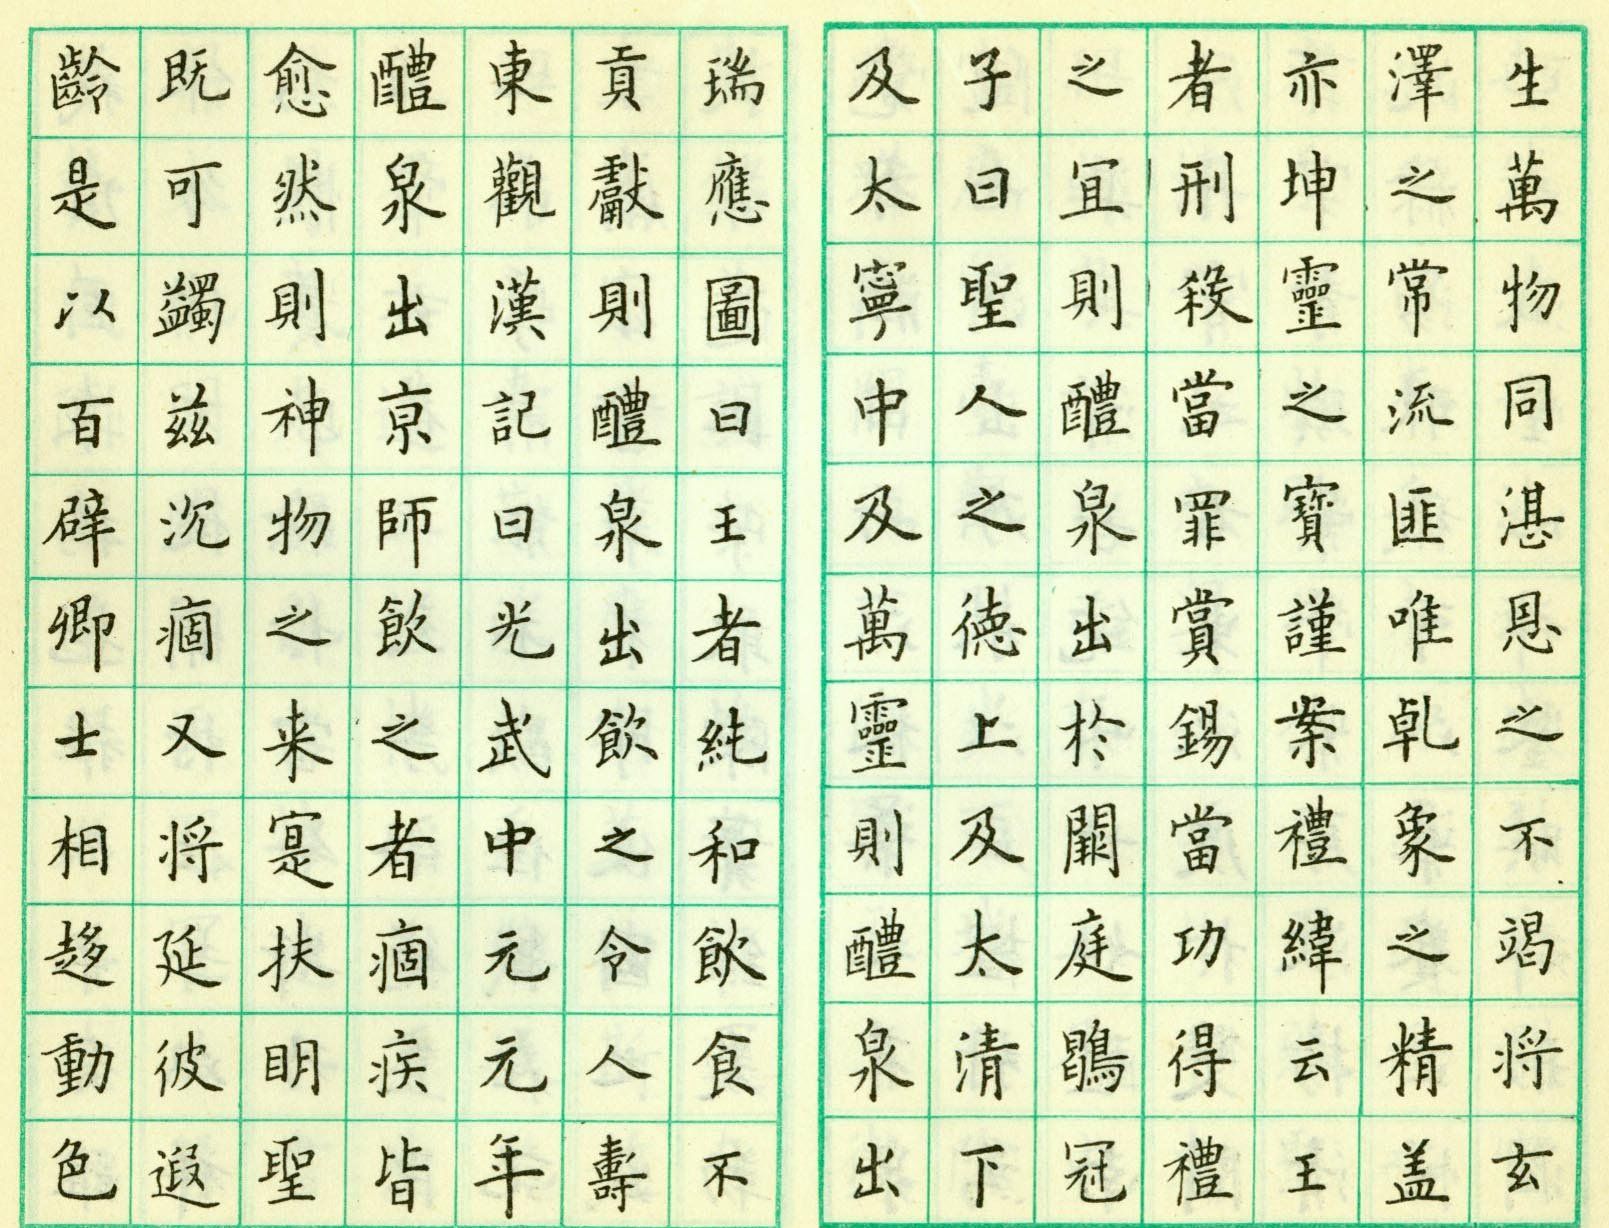 生萬物同湛恩之不竭將玄
澤之常流匪唯乹象之精盖
亦坤靈之寶謹案禮緯云王
者刑殺當罪賞錫當功得禮
之宜則醴泉出於闕庭鶡冠
子曰聖人之德上及太清下
及太寧中及萬靈則醴泉出
瑞應圖曰王者純和飲食不
貢獻則醴泉出飲之令人壽
東觀漢記曰光武中元元年
醴泉出京師飲之者痼疾皆
愈然則神物之来寔扶明聖
既可蠲兹沉痼又将延彼遐
齡是以百辟卿士相趍動色